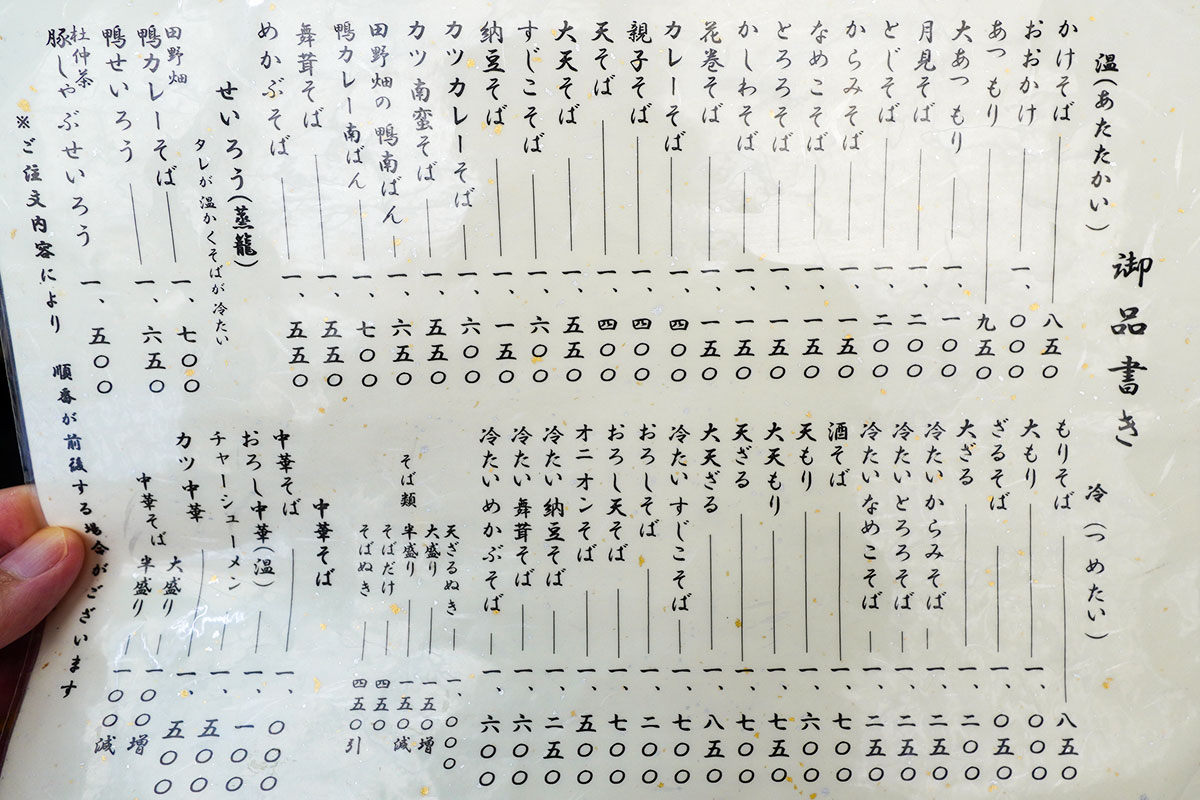 御品書き
温(あたたかい)
かけそば 八五〇
おおかけ 一、〇〇〇
あつもり 九五〇
大あつもり 一、一〇〇
月見そば 一、二〇〇
とじそば 一、二〇〇
からみそば 一、一五〇
なめこそば 一、一五〇
とろろそば 一、一五〇
かしわそば 一、一五〇
花巻そば 一、一五〇
カレーそば 一、四〇〇
親子そば 一、四〇〇
天そば 一、四〇〇
大天そば 一、五五〇
すじこそば 一、六〇〇
納豆そば 一、一五〇
カツカレーそば 一、六〇〇
カツ南蛮そば 一、五五〇
田野畑の鴨南ばん 一、六五〇
鴨カレー南ばん 一、七〇〇
舞茸そば 一、五五〇
めかぶそば 一、五五〇
せいろう(蒸籠)
タレが温かくそばが冷たい
田野畑
鴨カレーそば 一、七〇〇
鴨せいろう 一、六五〇
杜仲茶
豚しゃぶせいろう 一、五〇〇
冷(つめたい)
もりそば 八五〇
大もり 一、〇〇〇
ざるそば 一、〇五〇
大ざる 一、二〇〇
冷たいからみそば 一、二五〇
冷たいとろろそば 一、二五〇
冷たいなめこそば 一、二五〇
酒そば 一、七〇〇
天もり 一、六〇〇
大天もり 一、七五〇
天ざる 一、七〇〇
大天ざる 一、八五〇
冷たいすじこそば 一、七〇〇
おろしそば 一、二〇〇
おろし天そば 一、七〇〇
オニオンそば 一、五〇〇
冷たい納豆そば 一、二五〇
冷たい舞茸そば 一、六〇〇
冷たいめかぶそば 一、六〇〇
天ざるぬき 一、〇〇〇
そば類 大盛り 一五〇増
半盛り 一五〇減
そばだけ 四五〇
そばぬき 四五〇引
中華そば
中華そば 一、〇〇〇
おろし中華(温) 一、一〇〇
チャーシューメン 一、五〇〇
カツ中華 一、五〇〇
中華そば 大盛り 一〇〇増
半盛り 一〇〇減
※ご注文内容により 順番が前後する場合がございます